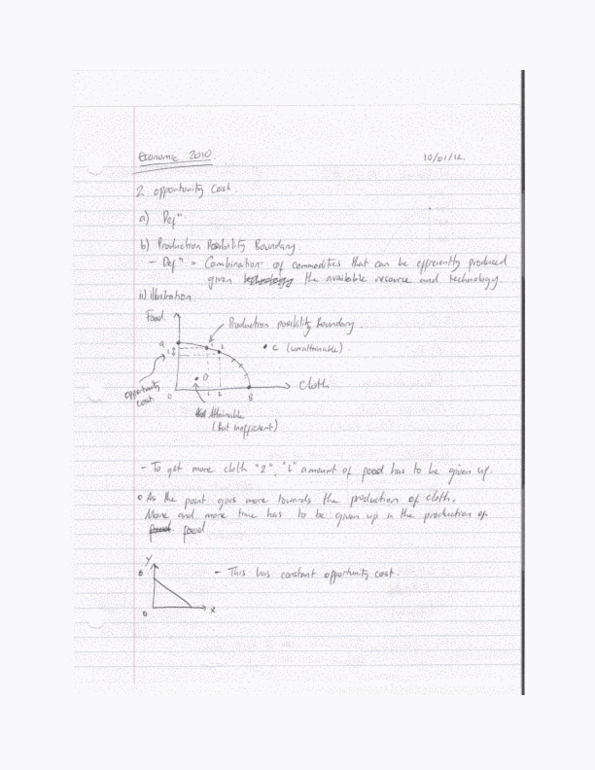 Economic 2010.
10/01/12
2. opportunity Cost.
a) Defⁿ.
b) Production Possibility Boundary.
- Defⁿ = Combination of commodities that can be efficiently produced
given the available resource and technology.
ii) illustration
Food
Production possibility Boundary
a
1
2
C (unattainable).
opportunity
cost
D
0
1
2
B
Cloth
Attainable
(but inefficient)
- To get more cloth "2", "1" amount of food has to be given up.
As the point goes more towards the production of cloth.
More and more time has to be given up in the production of
food
Y
0
X
- This has constant opportunity cost.